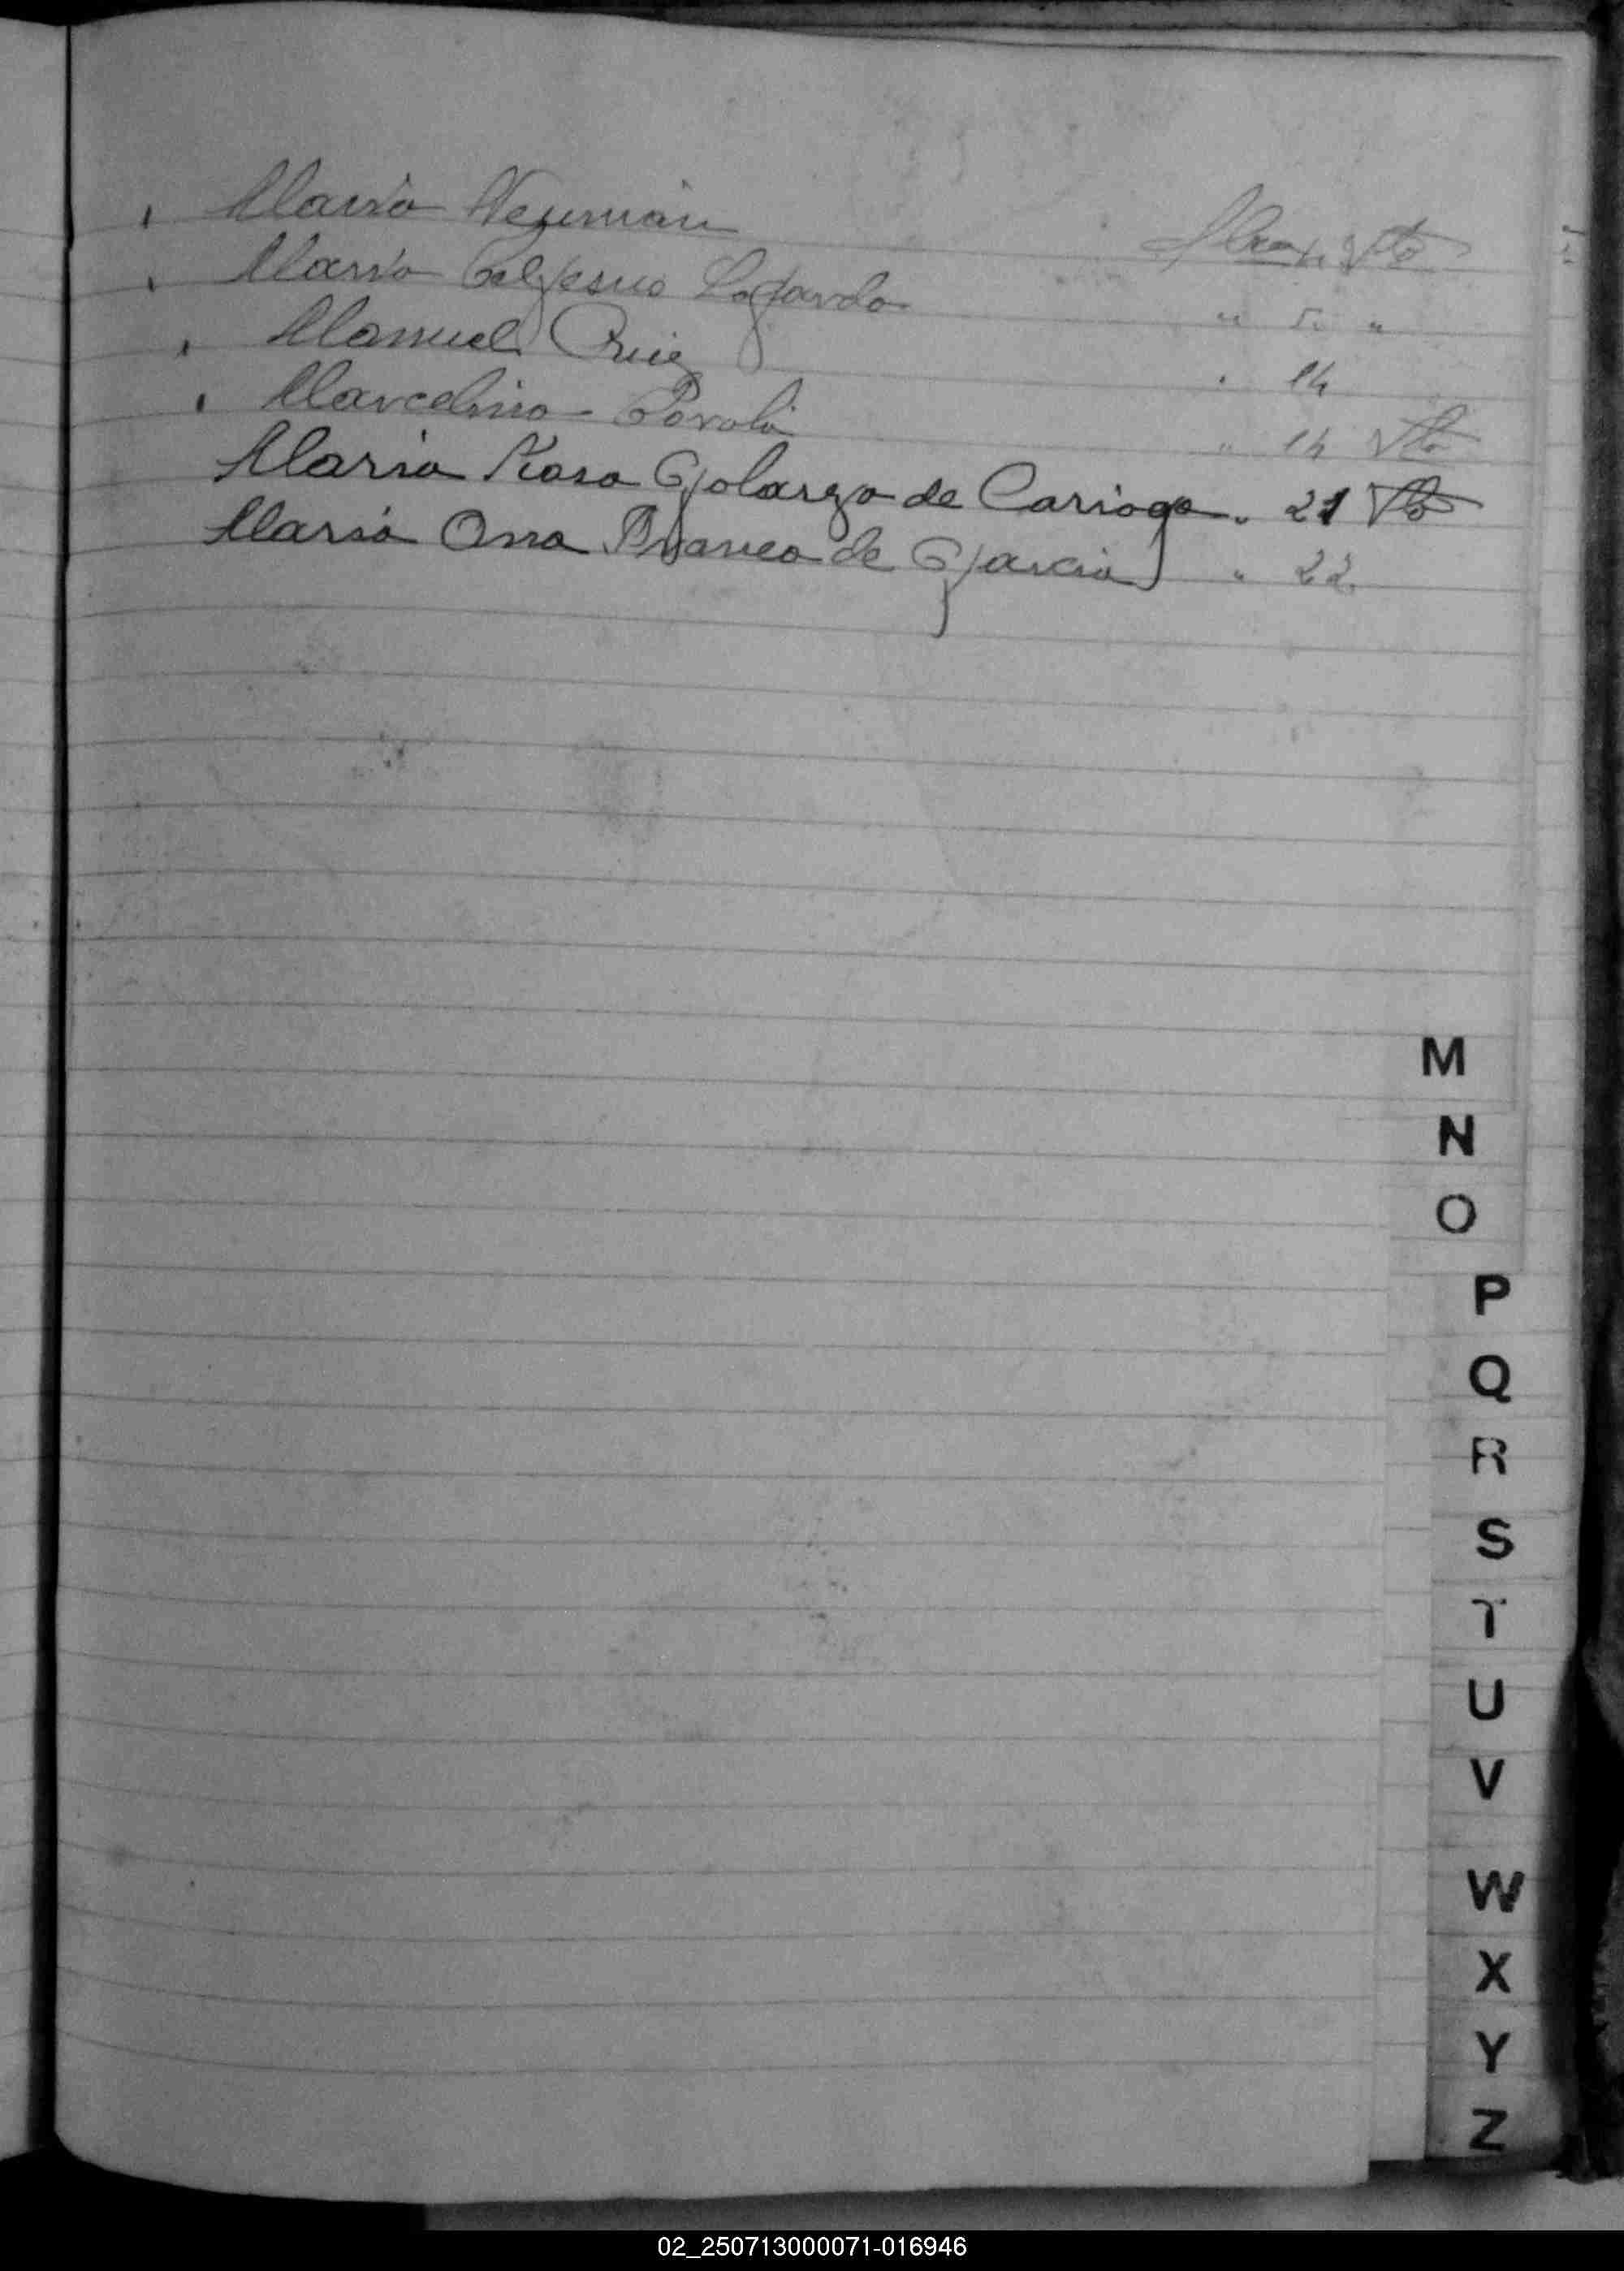 Maria Neuman
Maria Lofardo " 5 "
Manuel Ruiz " 14
Marcelino " 14 Vto
Maria Rosa Golarzo de Cariaga " 21 Vto
Maria Ana Franco de Garcia " 22
M
N
O
P
Q
R
S
T
U
V
W
X
Y
Z
02_250713000071-016946